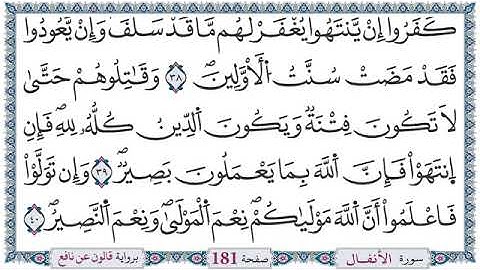 كَفَرُوا إِنْ يَّنتَهُوا يُغْفَرْ لَهُم مَّا قَدْ سَلَفَ وَإِنْ يَّعُودُوا
فَقَدْ مَضَتْ سُنَّتُ الْأَوَّلِينَ ٣٨ وَقَاتِلُوهُمْ حَتَّىٰ
لَا تَكُونَ فِتْنَةٌ وَيَكُونَ الدِّينُ كُلُّهُ لِلهِ فَإِنِ
اِنتَهَوْا فَإِنَّ اللَّهَ بِمَا يَعْمَلُونَ بَصِيرٌ ٣٩ وَإِن تَوَلَّوْا
فَاعْلَمُوا أَنَّ اللَّهَ مَوْلَيٰكُمْ نِعْمَ الْمَوْلَىٰ وَنِعْمَ النَّصِيرُ ٤٠
سورة الأنفال صفحة 181 برواية قالون عن نافع